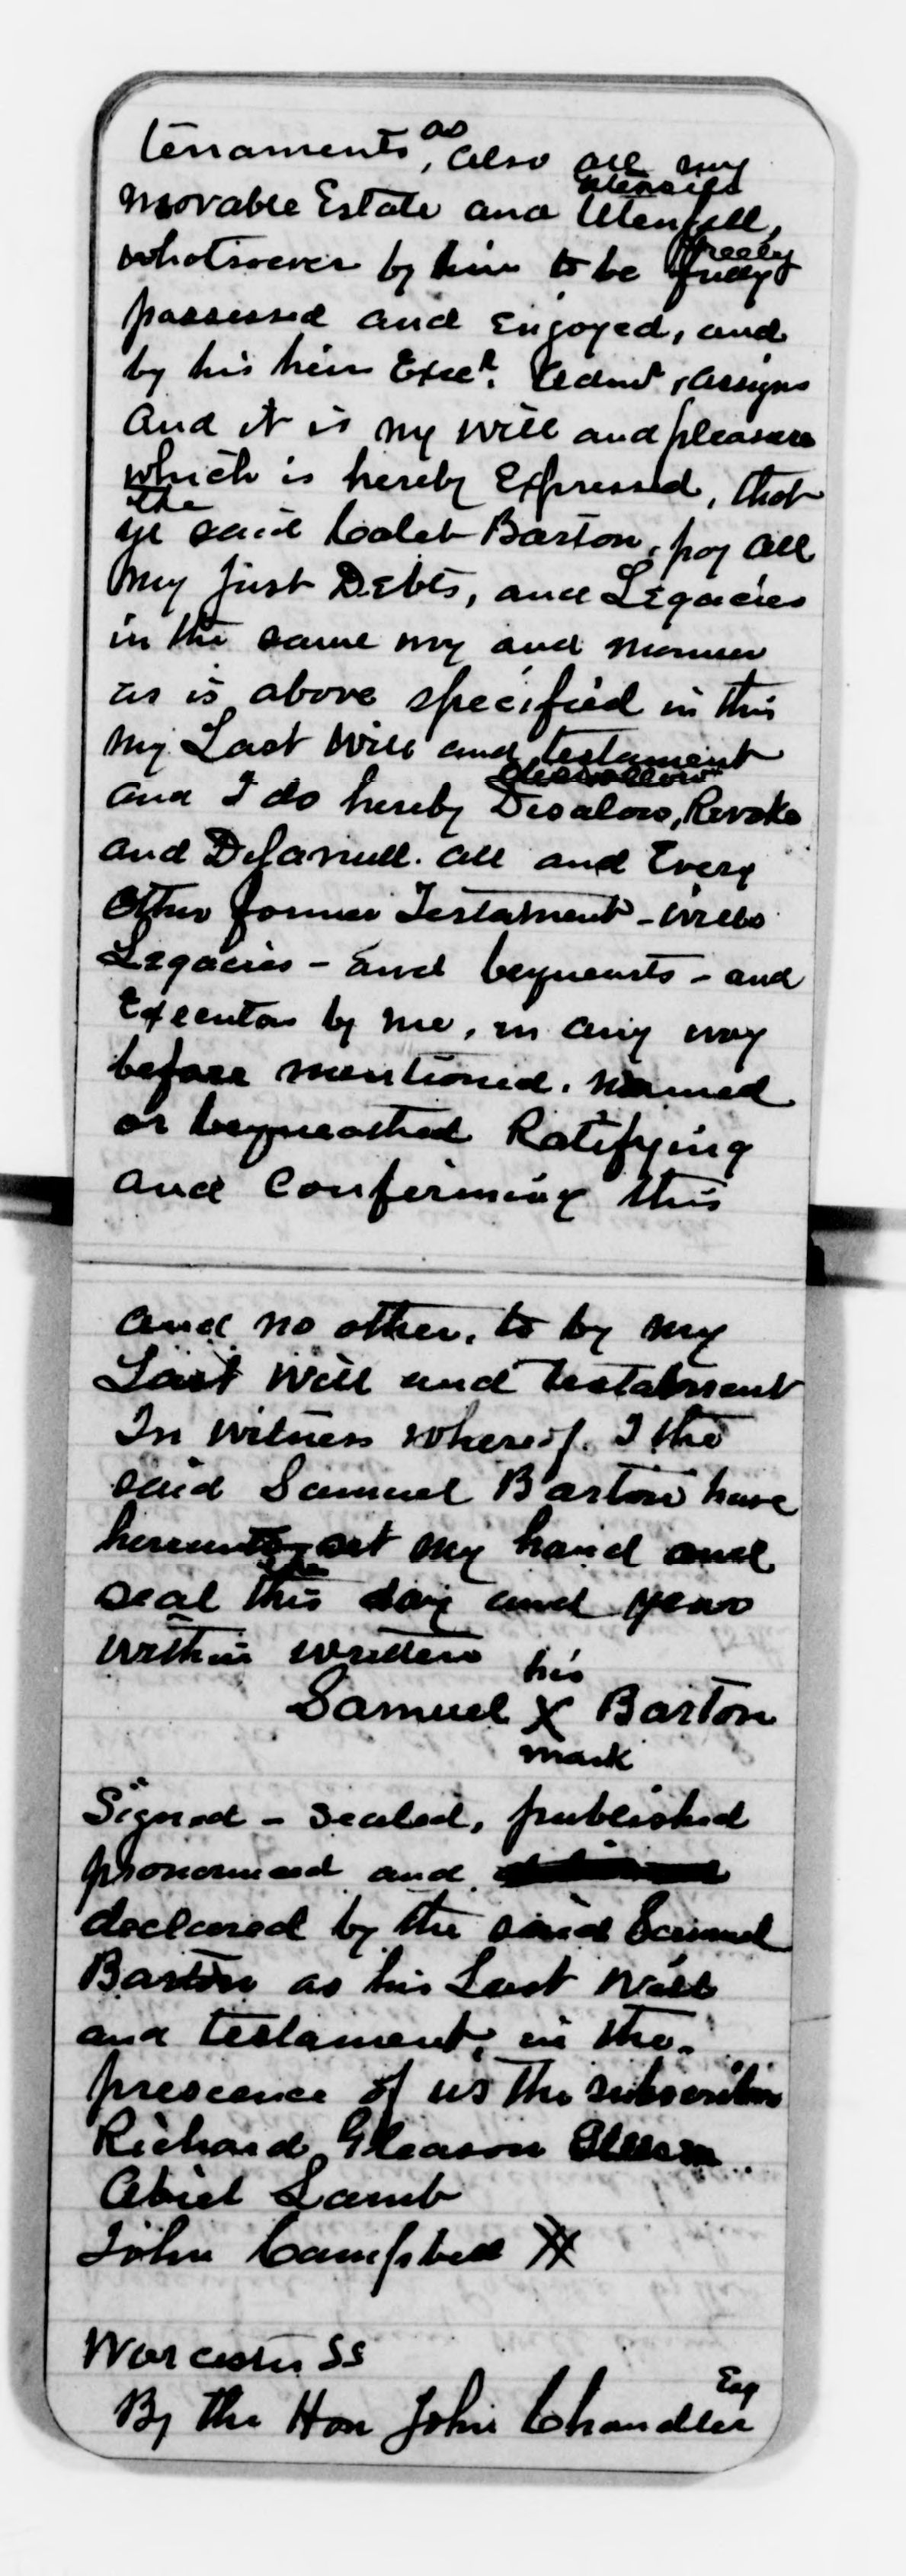 as
tenaments, also all my
utensils
movable Estate and Utensill,
whotsoever by him to be freely
fully
possessed and enjoyed, and
by his heirs Exec.t Admt, Assigns
and it is my will and pleasure
which is hereby Expressed, that
the
ye said Caleb Barton, pay all
my just Debts, and Legacies
in the same my and manner
as is above specified in this
my Last Will and testament
disallow
and I do hereby Disalow, Revoke
and Disannull. all and Every
other former Testament - wills
Legacies - and bequeasts - and
Executors by me, in any way
before mentioned. Named
or bequeathed Ratifying
and Confirming this
and no other, to by my
Last Will and testatment
In witness whereof. I the
said Samuel Barton have
hereunto set my hand and
seal this day and year
within written
his
Samuel X Barton
mark
Signed - sealed, published
pronounced and
declared by the said Samuel
Barton as his Last Will
and testament, in the.
prescence of us the subscribers
Richard Gleason
Abiel Lamb
John Campbell
Worcester SS
Esq
By the Hon John Chandler